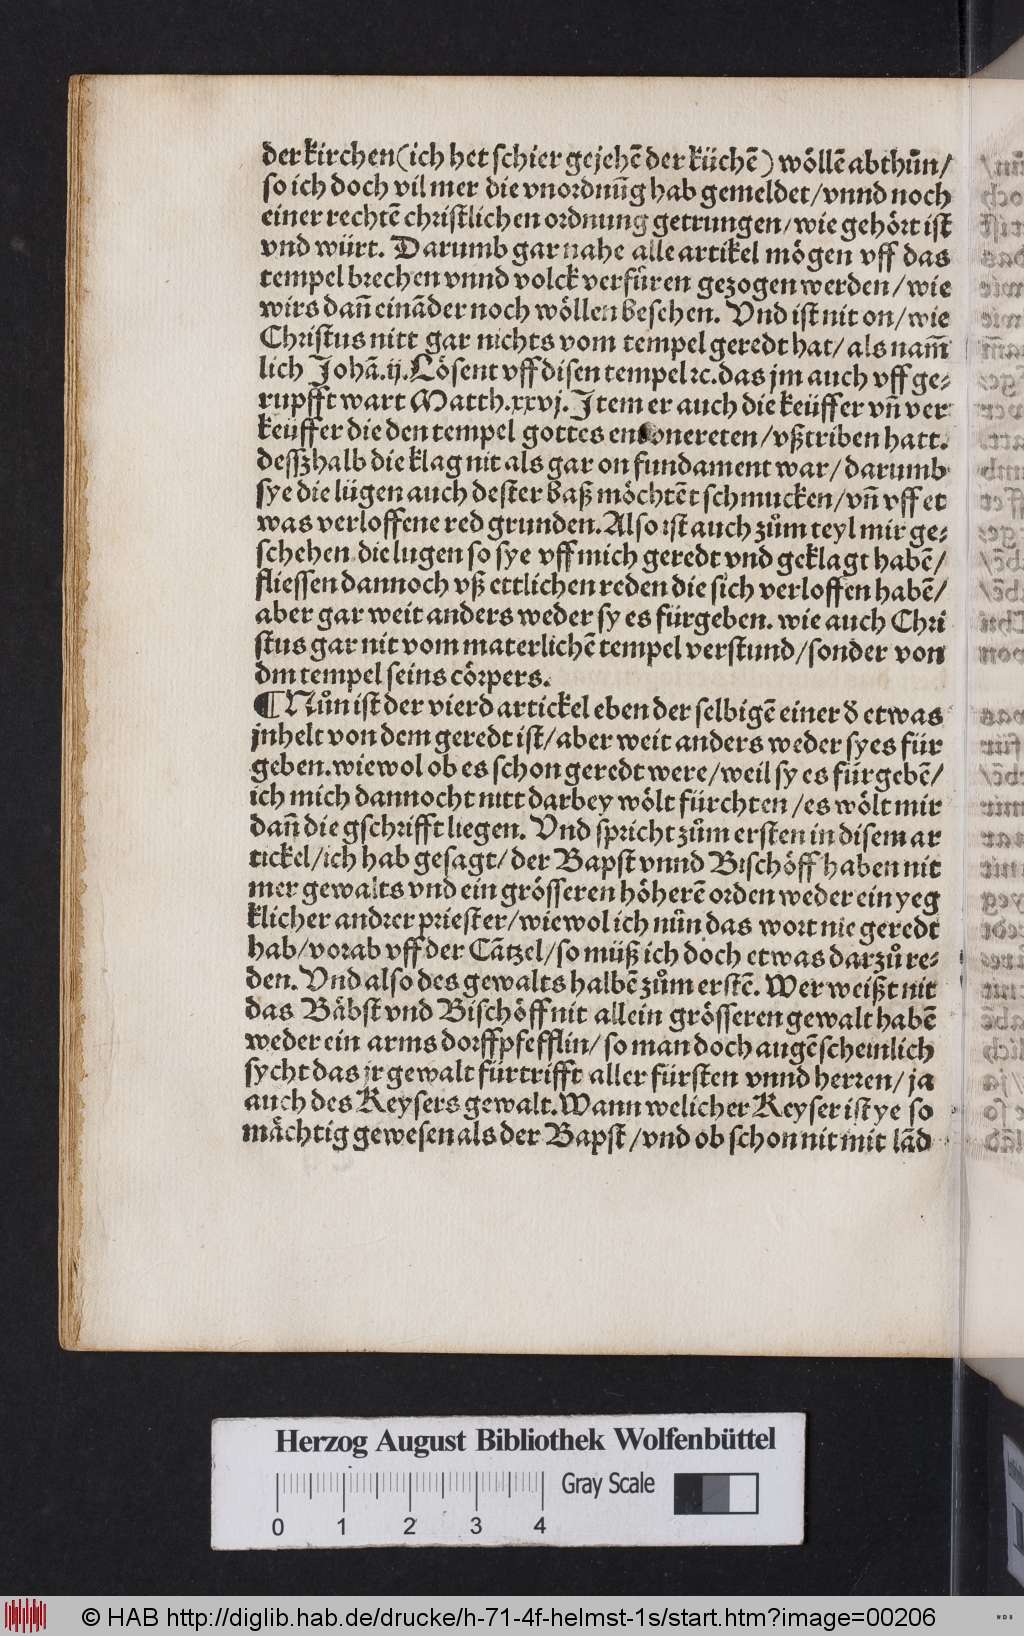 der kirchen (ich het schier gejehē der küchē) wöllē abthůn/
so ich doch vil mer die vnordnūg hab gemeldet/ vnnd noch
einer rechtē christlichen ordnung getrungen/ wie gehört ist
vnd würt. Darumb gar nahe alle artikel mögen vff das
tempel brechen vnnd volck verfůren gezogen werden/ wie
wirs dañ einãder noch wöllen besehen. Vnd ist nit on/ wie
Christus nitt gar nichts vom tempel geredt hat/ als nam̃
lich Johā.ij. Lösent vff disen tempel ꝛc. das jm auch vff ge⸗
rupfft wart Matth.xxvj. Item er auch die keüffer vñ ver
keüffer die den tempel gottes enonereten/ vßtriben hatt.
desszhalb die klag nit als gar on fundament war/ darumb
sye die lügen auch dester baß möchtēt schmucken/ vñ vff et
was verloffene red grunden. Also ist auch zům teyl mir ge⸗
schehen. die lugen so sye vff mich geredt vnd geklagt habē/
fliessen dannoch vß ettlichen reden die sich verloffen habē/
aber gar weit anders weder sy es fürgeben. wie auch Chri
stus gar nit vom materlichē tempel verstund/ sonder von
dm tempel seins cörpers.
¶ Nůn ist der vierd artickel eben der selbigē einer d̕ etwas
jnhelt von dem geredt ist/ aber weit anders weder sy es für
geben. wiewol ob es schon geredt were/ weil sy es fürgebē/
ich mich dannocht nitt darbey wölt fürchten/ es wölt mir
dañ die gschrifft liegen. Vnd spricht zům ersten in disem ar
tickel/ ich hab gesagt/ der Bapst vnnd Bischöff haben nit
mer gewalts vnd ein grösseren höherē orden weder ein yeg
klicher andrer priester/ wiewol ich nůn das wort nie geredt
hab/ vorab vff der Cātzel/ so můß ich doch etwas darzů re⸗
den. Vnd also des gewalts halbē zům erstē. Wer weißt nit
das Bäbst vnd Bischöff nit allein grösseren gewalt habē
weder ein arms dorffpfefflin/ so man doch augēscheinlich
sycht das jr gewalt fürtrifft aller fürsten vnnd herren/ ja
auch des Keysers gewalt. Wann welicher Keyser ist ye so
mächtig gewesen als der Bapst/ vnd ob schon nit mit lād
Herzog August Bibliothek Wolfenbüttel
Gray Scale
0 1 2 3 4
© HAB http://diglib.hab.de/drucke/h-71-4f-helmst-1s/start.htm?image=00206